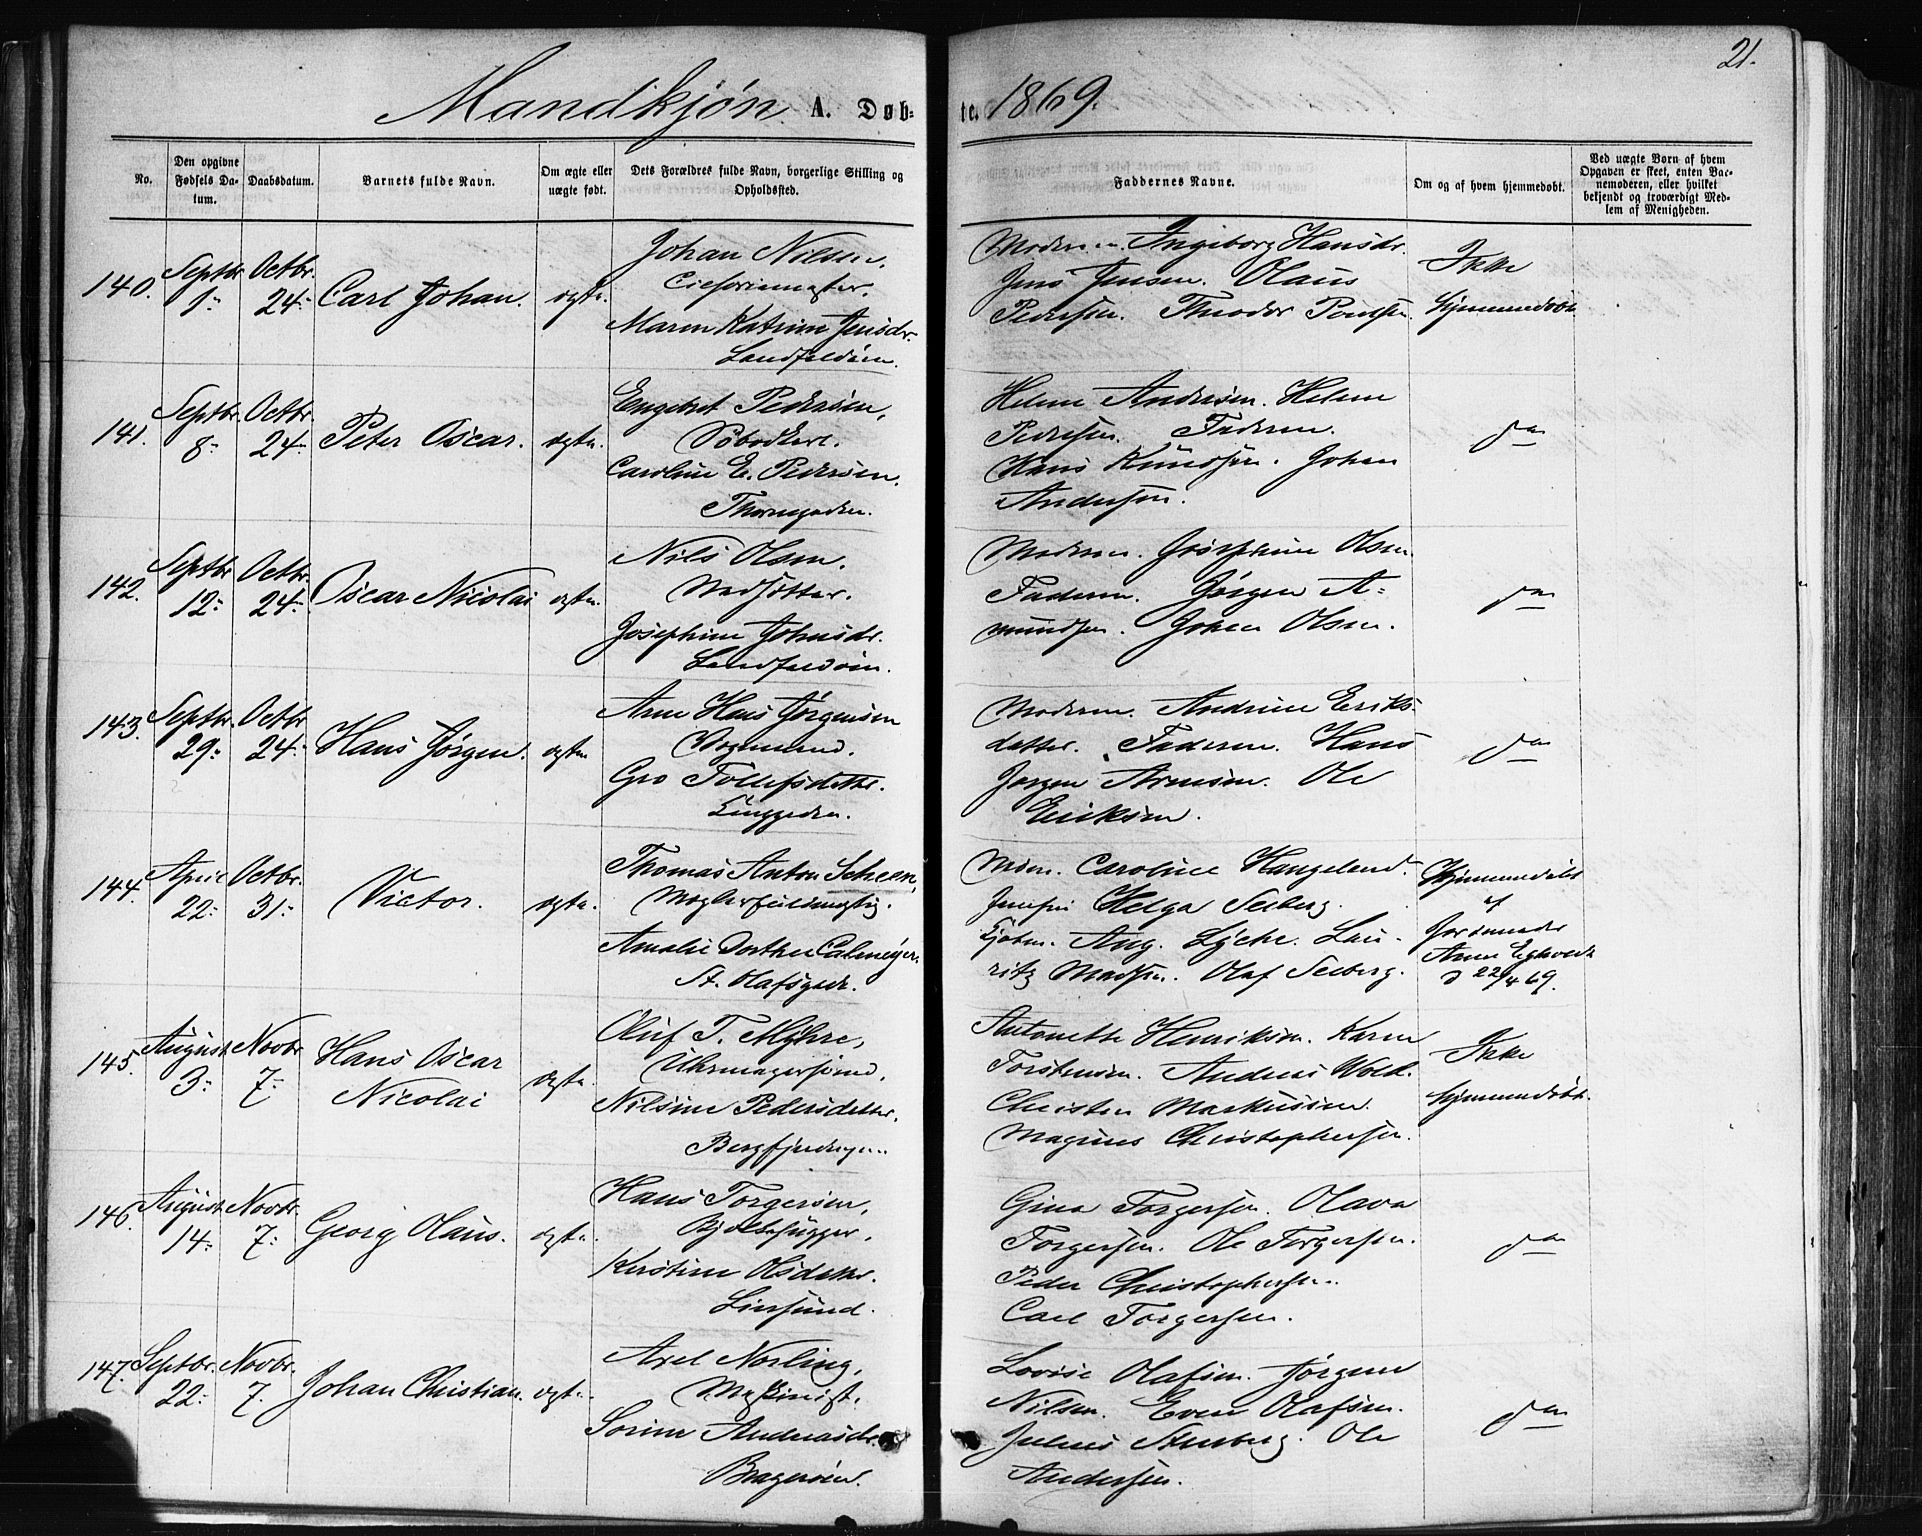 21.
Mandkjøn A. Døb-
te. 1869.
No.
Den opgivne Fødsels Da-
tum.
Daabsdatum.
Barnets fulde Navn.
Om ægte eller
uægte født.
Dets Forældres fulde Navn, borgerlige Stilling og
Opholdssted.
Faddernes Navne.
Om og af hvem hjemmedøbt.
Ved uægte Børn af hvem
Opgaven er skeet, enten Bar-
nemoderen, eller hvilket
bekjendt og troværdigt Med-
lem af Menigheden.
140. Septbr 1. Octbr. 24. Carl Johan. ægte.
Johan Nilsen,
Maren Katrine Jensdr.
Landfaldøen.
Moderen. Ingeborg Hansdr.
Jens Jensen. Olaus
Pedersen. Theodor Poulsen.
Ikke
hjemmedøbt
141. Septbr. 8. Octbr. 24. Peter Oscar. ægte.
Engebret Pedersen,
Caroline E. Pedersen.
Thornegaden.
Helene Andersen. Helene
Pedersen. Faderen.
Hans Knudsen. Johan
Andersen.
do
142. Septbr 12. Octbr. 24. Oscar Nicolai ægte.
Nils Olsen.
Josephine Johnsdr.
Landfaldøen.
Moderen. Josephine Olsen.
Faderen. Jørgen A-
mundsen. Johan Olsen.
do
143. Septbr. 29. Octbr 24. Hans Jørgen. ægte
Arne Hans Jørgensen
Vognmand.
Gro Tollefsdetter.
Moderen. Andrine Eriks-
datter. Faderen. Hans
Jørgen Arnesen. Ole
Eriksen.
do
144. April 22. Octbr. 31. Victor. ægte.
Thomas Anton Scheen,
Amalie Dorthea Calmeÿer.
St. Olafsgade.
Caroline Haugeland.
Helga Seeberg.
Aug. Lÿche. Lau-
ritz Madsen. Olaf Seeberg.
Hjemmedøbt
af
Jordmoder
Anne
d 22/4 69.
145. August 3. Novbr 7. Hans Oscar
Nicolai ægte.
Oluf T. Mÿhre,
Uhrmagersvend,
Nilsine Pedersdatter,
Antonette Henriksen. Karen
Torstensen. Andreas Wold.
Christen Markussen.
Magnus Christophersen.
Ikke
hjemmedøbt.
146. August 14. Novbr. 7. Georg Olaus. ægte.
Hans Torgersen,
Bjelkehugger,
Kerstine Olsdatter.
Gina Torgersen. Olava
Torgersen. Ole Torgersen.
Peder Christophersen.
Carl Torgersen.
do
147. Septbr. 22. Novbr. 7. Johan Christian. ægte.
Axel Norling,
Maskinist.
Sorine Andreasdr.
Bragerøen.
Lovise Olafsen. Jørgen
Nilsen. Even Olafsen.
Julius Ole
Andersen.
do